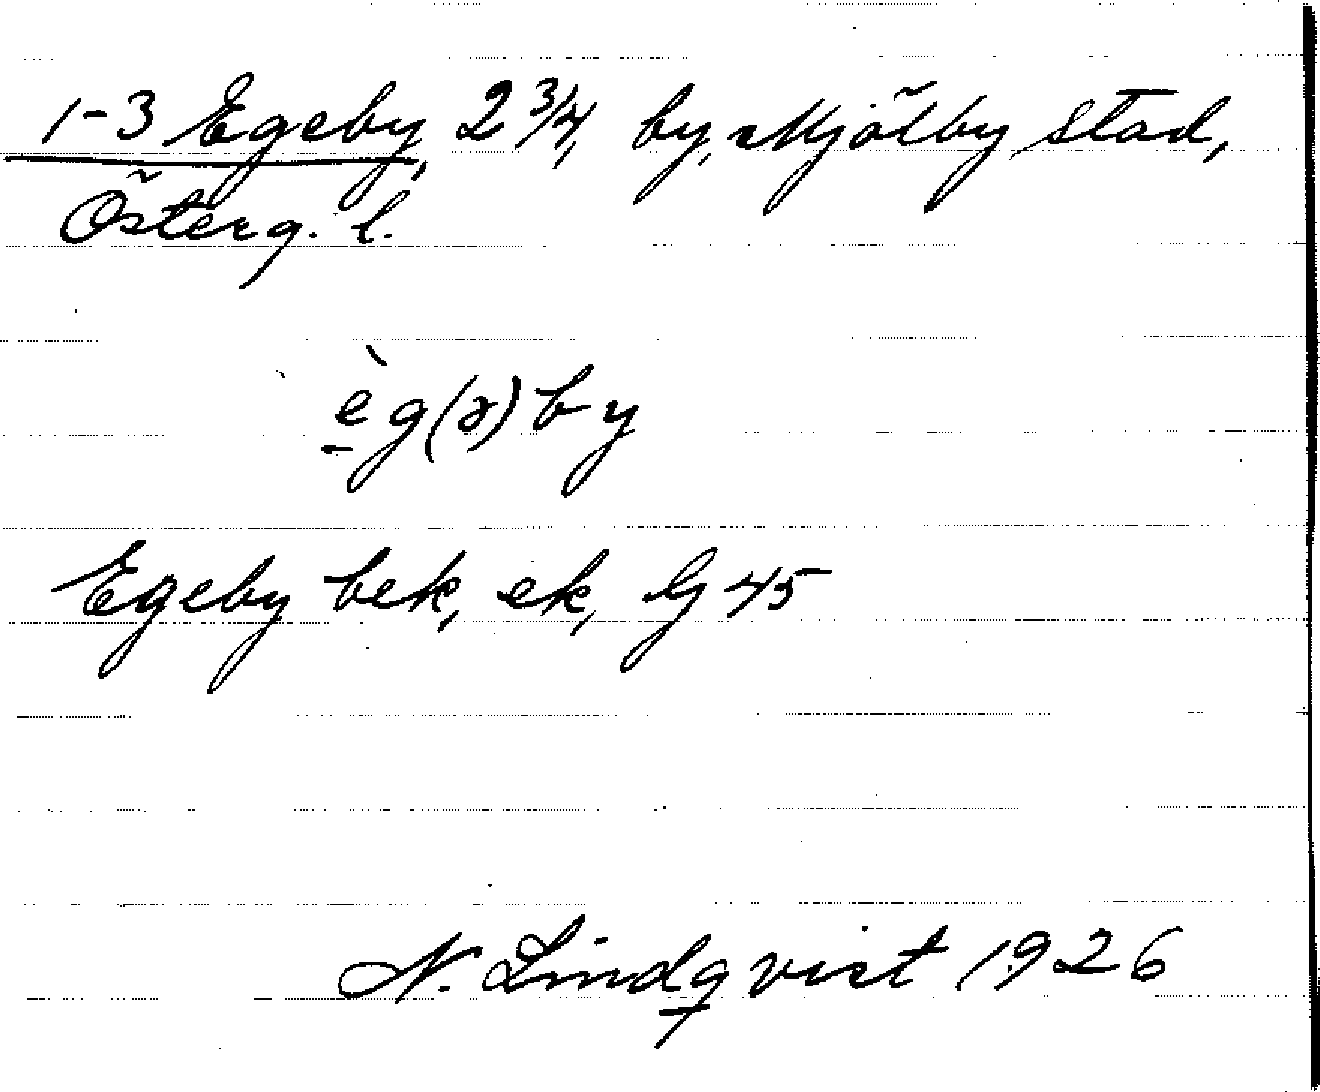 1-3 Egeby, 2 3/4, by, Mjölby stad,
Österg. l.
èg(ə)by
Egeby bek, ek, G 45
N. Lindqvist 1926